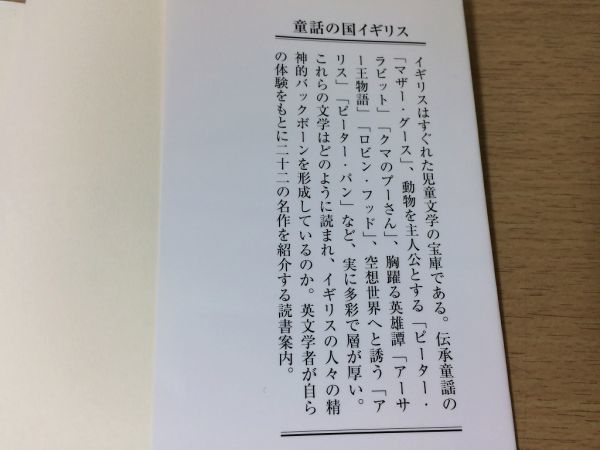 童話の国イギリス
イギリスはすぐれた児童文学の宝庫である。伝承童謡の
「マザー・グース」、動物を主人公とする「ピーター・
ラビット」「クマのプーさん」、胸躍る英雄譚「アーサ
ー王物語」「ロビン・フッド」、空想世界へと誘う「ア
リス」「ピーター・パン」など、実に多彩で層が厚い。
これらの文学はどのように読まれ、イギリスの人々の精
神的バックボーンを形成しているのか。英文学者が自ら
の体験をもとに二十二の名作を紹介する読書案内。